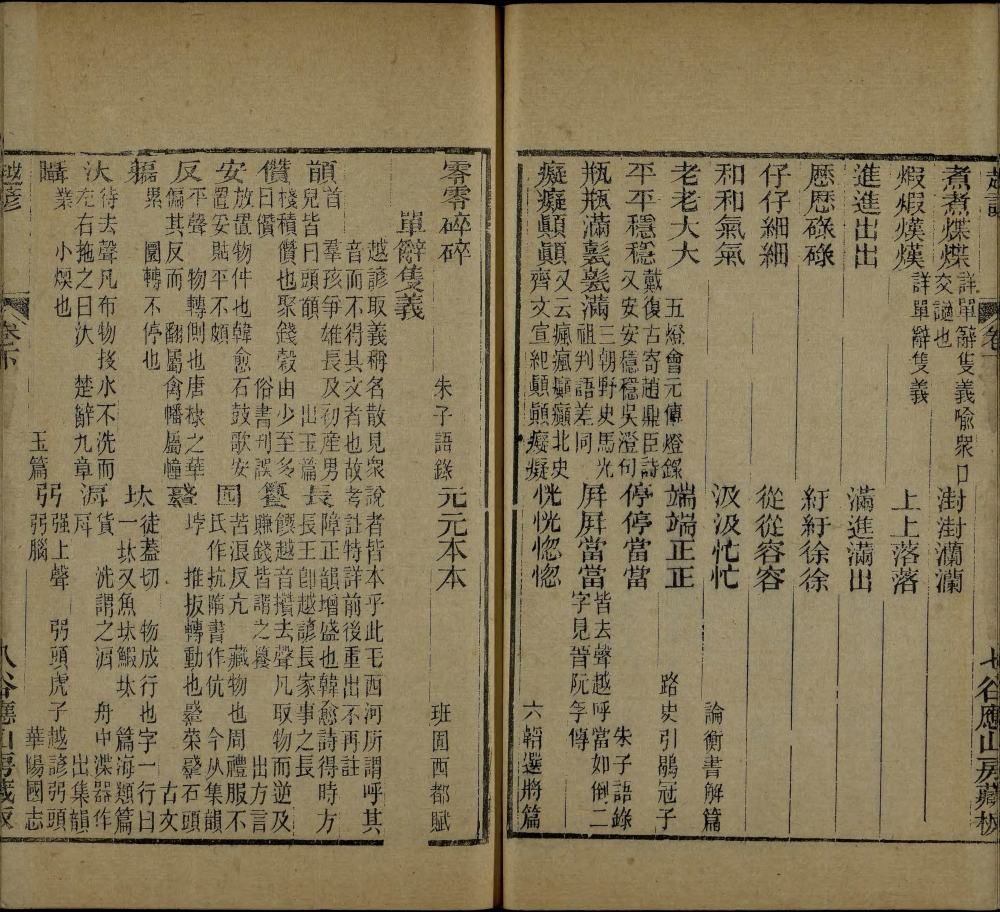 越諺
卷下
七谷應山房藏板
煮煮煠煠 詳單辭隻義喻衆口交讁也
湗湗灡灡
煆煆熯熯 詳單辭隻義
上上落落
進進出出
滿進滿出
歷歷碌碌
紆紆徐徐
仔仔細細
從從容容
和和氣氣
汲汲忙忙 論衡書解篇
老老大大 五燈會元傳燈錄
端端正正 路史引鶡冠子
平平穩穩 戴復古寄趙鼎臣詩又安安穩穩吳澄句
停停當當 朱子語錄
瓶瓶滿甏甏滿 三朝野史馬光祖判語差同
屏屏當當 皆去聲越呼當如倒二字見晉阮孚傳
癡癡顛顛 又云瘋瘋癲癲北史齊文宣紀顛顛癡癡
恍恍惚惚 六韜選將篇
零零碎碎 朱子語錄
元元本本 班固西都賦
單辭隻義
越諺取義稱名散見衆說者皆本乎此毛西河所謂呼其
音而不得其文者也故考註特詳前後重出不再註
頟 首 羣孩爭雄長及初産男兒皆曰頭頟 出玉篇
長 障正韻增盛也韓愈詩得時方長王卽越諺長家事之長
儹 棧積儹也聚錢穀由少至多曰儹 俗書刋誤
饡 饡越音攢去聲凡取物而逆及賺錢皆謂之饡 出方言
安 放置物件也韓愈石鼓歌安置妥貼平不頗
囥 苦浪反亢 藏物也周禮服不氏作抗隋書作伉 今从集韻
反 平聲 物轉側也唐棣之華偏其反而 翻屬禽幡屬幢
𤼭 㘐 推扳轉動也𤼭榮𤼭石頭 古文
䡺 累 圜轉不停也
埭 徒蓋切 物成行也字一行曰一埭又魚埭鰕埭 篇海類篇
汏 待去聲凡布物投水不洗而左右拖之曰汏 楚辭九章
涆 貨 洗謂之涆 舟中渫器作㪺 出集韻
㷸 業 小煗也 玉篇
弜 强上聲 弜頭虎子越諺弜頭弜腦 華陽國志
越諺
卷下
八谷應山房藏板